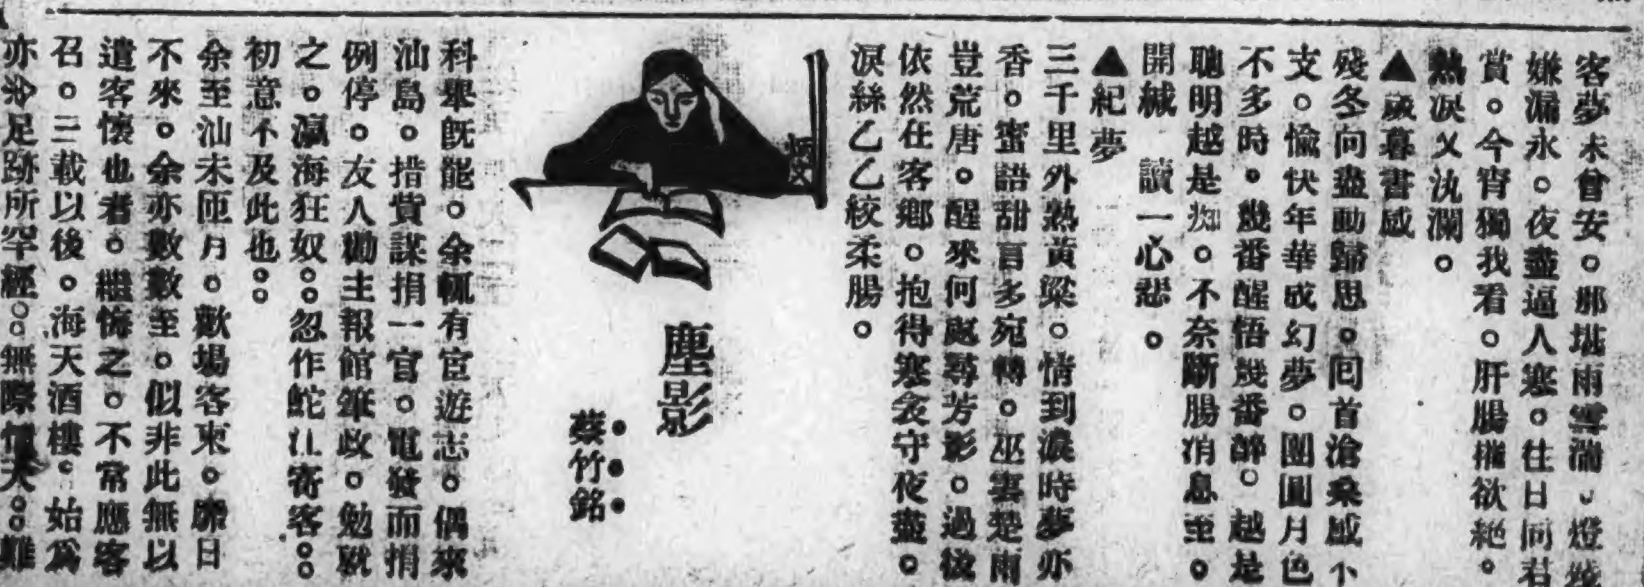 客夢未曾安。那堪雨雪濔。燈殘
嫌漏永。夜盡逼人寒。往日同君
賞。今宵獨我看。肝腸摧欲絕。
熱淚又汍瀾。
▲歲暮書感
殘冬向盡動歸思。囘首滄桑感不
支。愉快年華成幻夢。團圓月色
不多時。幾番醒悟幾番醉。越是
聰明越是痴。不奈斷腸消息至。
開緘讀一心悲。
▲紀夢
三千里外熱黃粱。情到濃時夢亦
香。蜜語甜言多宛轉。巫雲楚雨
豈荒唐。醒來何處尋芳影。過後
依然在客鄉。抱得寒衾守夜盡。
淚絲乙乙絞柔腸。
塵影
蔡竹銘
科舉既罷。余輒有宦遊志。偶來
汕島。措貲謀捐一官。電發而捐
例停。友人勸主報館筆政。勉就
之。瀛海狂奴。忽作鮀江寄客。
初意不及此也。
余至汕未匝月。歡場客東。靡日
不來。余亦數數至。似非此無以
遣客懷也者。繼悔之。不常應客
召。三載以後。海天酒樓。始爲
亦冷足跡所罕經。無際情天。難